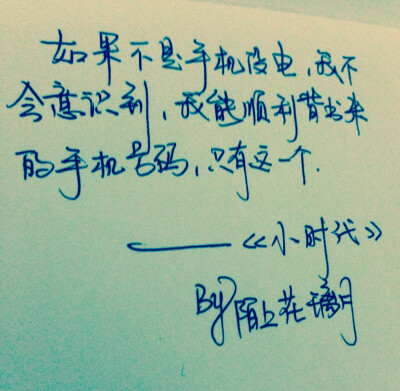 如果不是手机没电,我不
会意识到,我能顺利背出来
的手机号码,只有这一个.
——《小时代》
By 陌上花